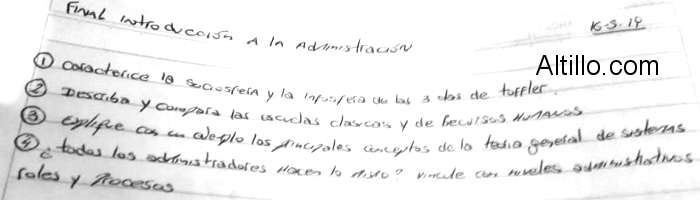 Final Introducción A la Administración
16-5-19
Altillo.com
① Caracterice la sociosfera y la infosfera de las 3 olas de toffler.
② Describa y compara las escuelas clasicas y de Recursos Humanos
③ explique con un ejemplo los principales conceptos de la teoria general de sistemas
④ ¿todos los administradores hacen lo mismo? vincule con niveles administrativos
roles y procesos